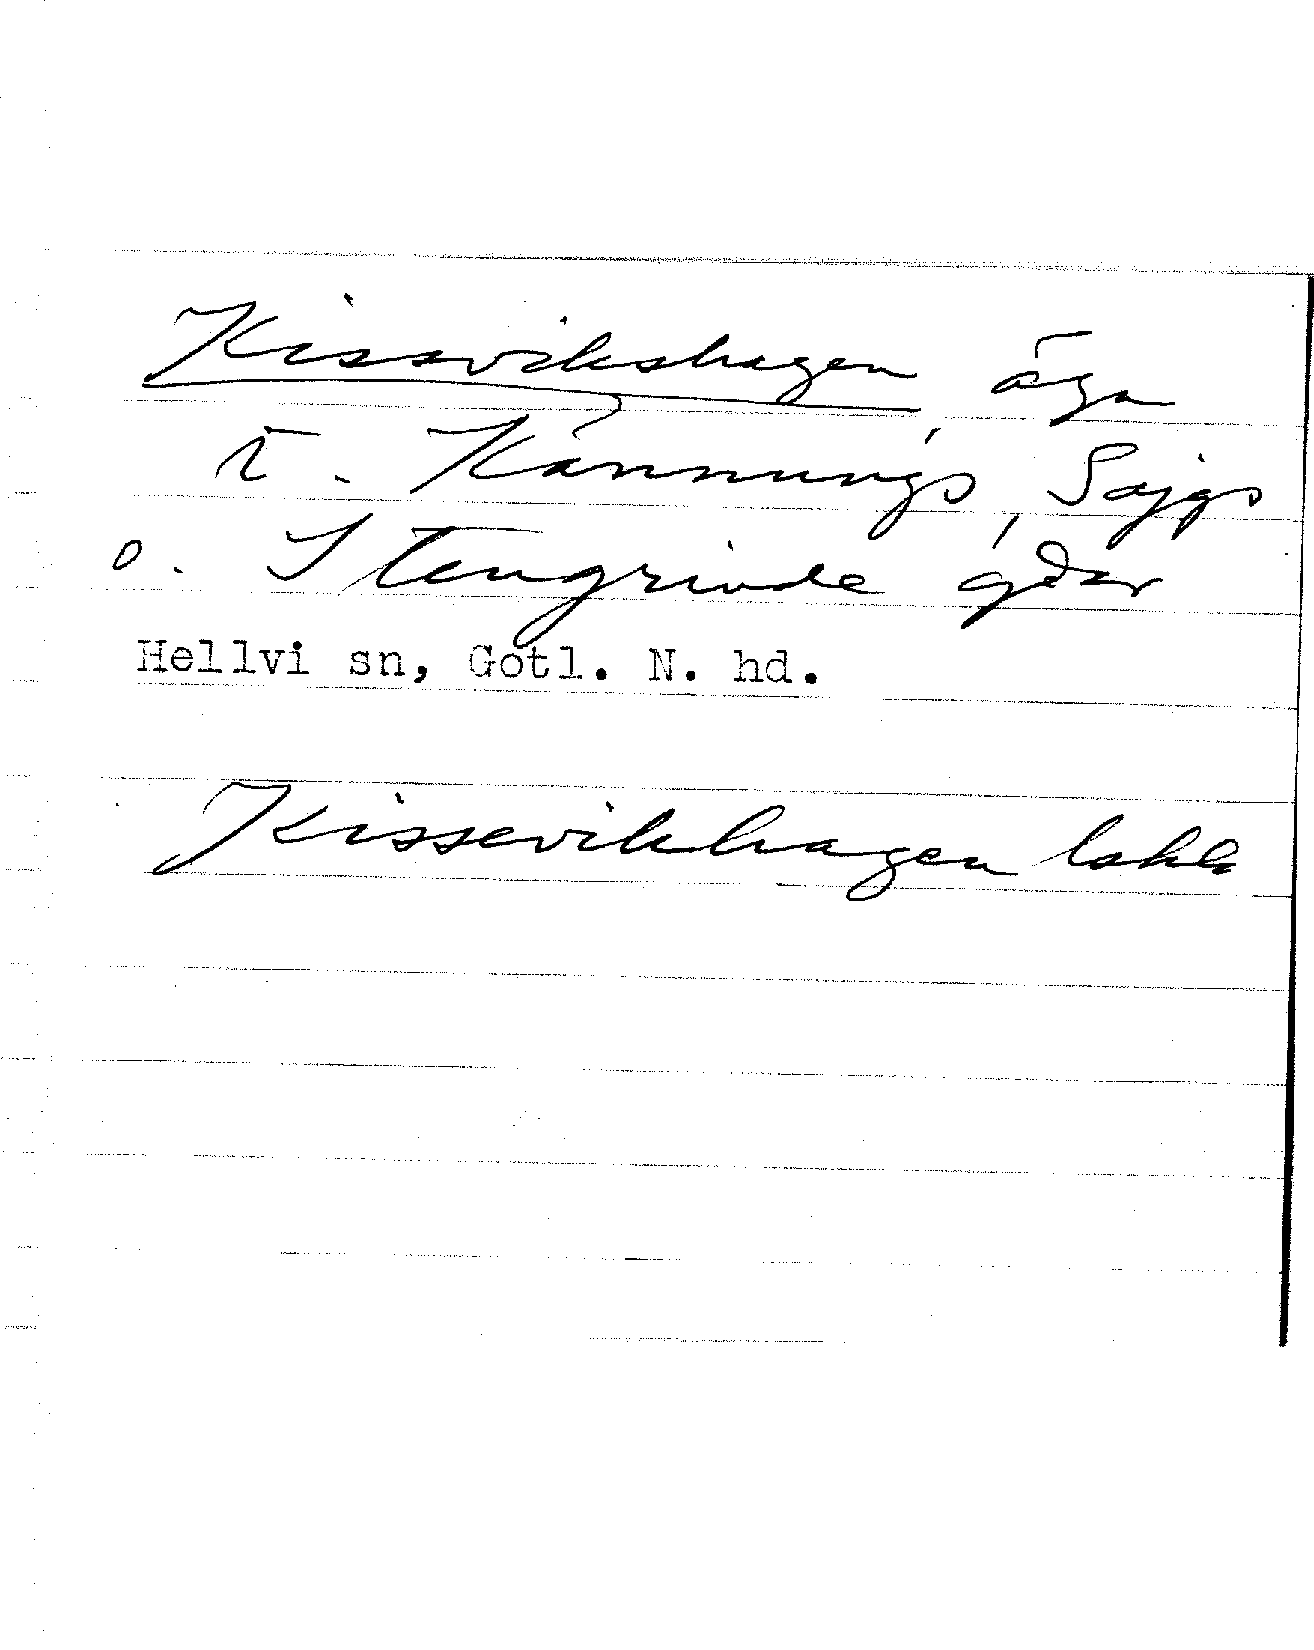 Kissvikshagen äga
t. Kännungs, Sajgs
o. Stengrinde gdar
Hellvi sn, Gotl. N. hd.
Kissevikhagen lokls